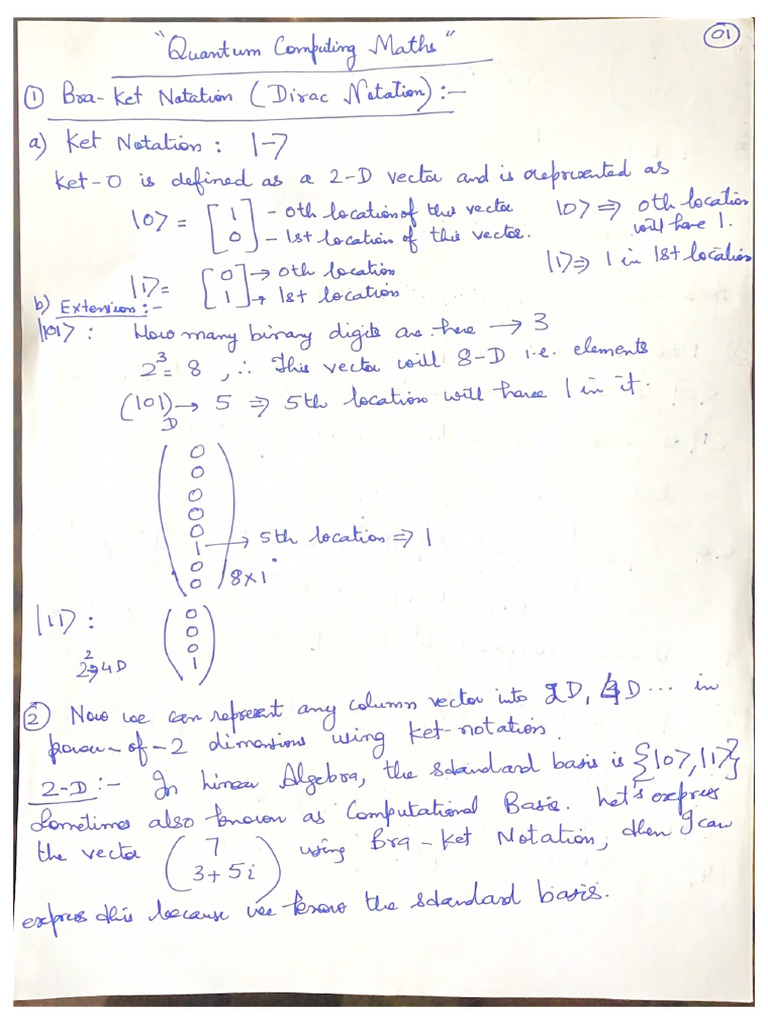 01
"Quantum Computing Maths"
① Bra-Ket Notation (Dirac Notation):-
a) Ket Notation: |-⟩
Ket-0 is defined as a 2-D vector and is represented as
|0⟩ = [1 0] - 0th location of this vector - 1st location of this vector. |0⟩ ⇒ 0th location will have 1.
|1⟩ = [0 1] → 0th location → 1st location |1⟩ ⇒ 1 in 1st location
b) Extension:-
|101⟩: How many binary digits are there → 3
2³ = 8, ∴ This vector will 8-D i.e. elements
(101)D → 5 ⇒ 5th location will have 1 in it.
0
0
0
0
0
1 → 5th location ⇒ 1
0
0 8×1
|11⟩: 0
0
0
2² ⇒ 4D 1
② Now we can represent any column vector into 2D, 4D ... in
power-of-2 dimensions using Ket-notation.
2-D:- In Linear Algebra, the standard basis is {|0⟩, |1⟩}
Sometimes also known as Computational Basis. Let's express
the vector (7 3+5i) using Bra-Ket Notation, then I can
express this because we know the standard basis.